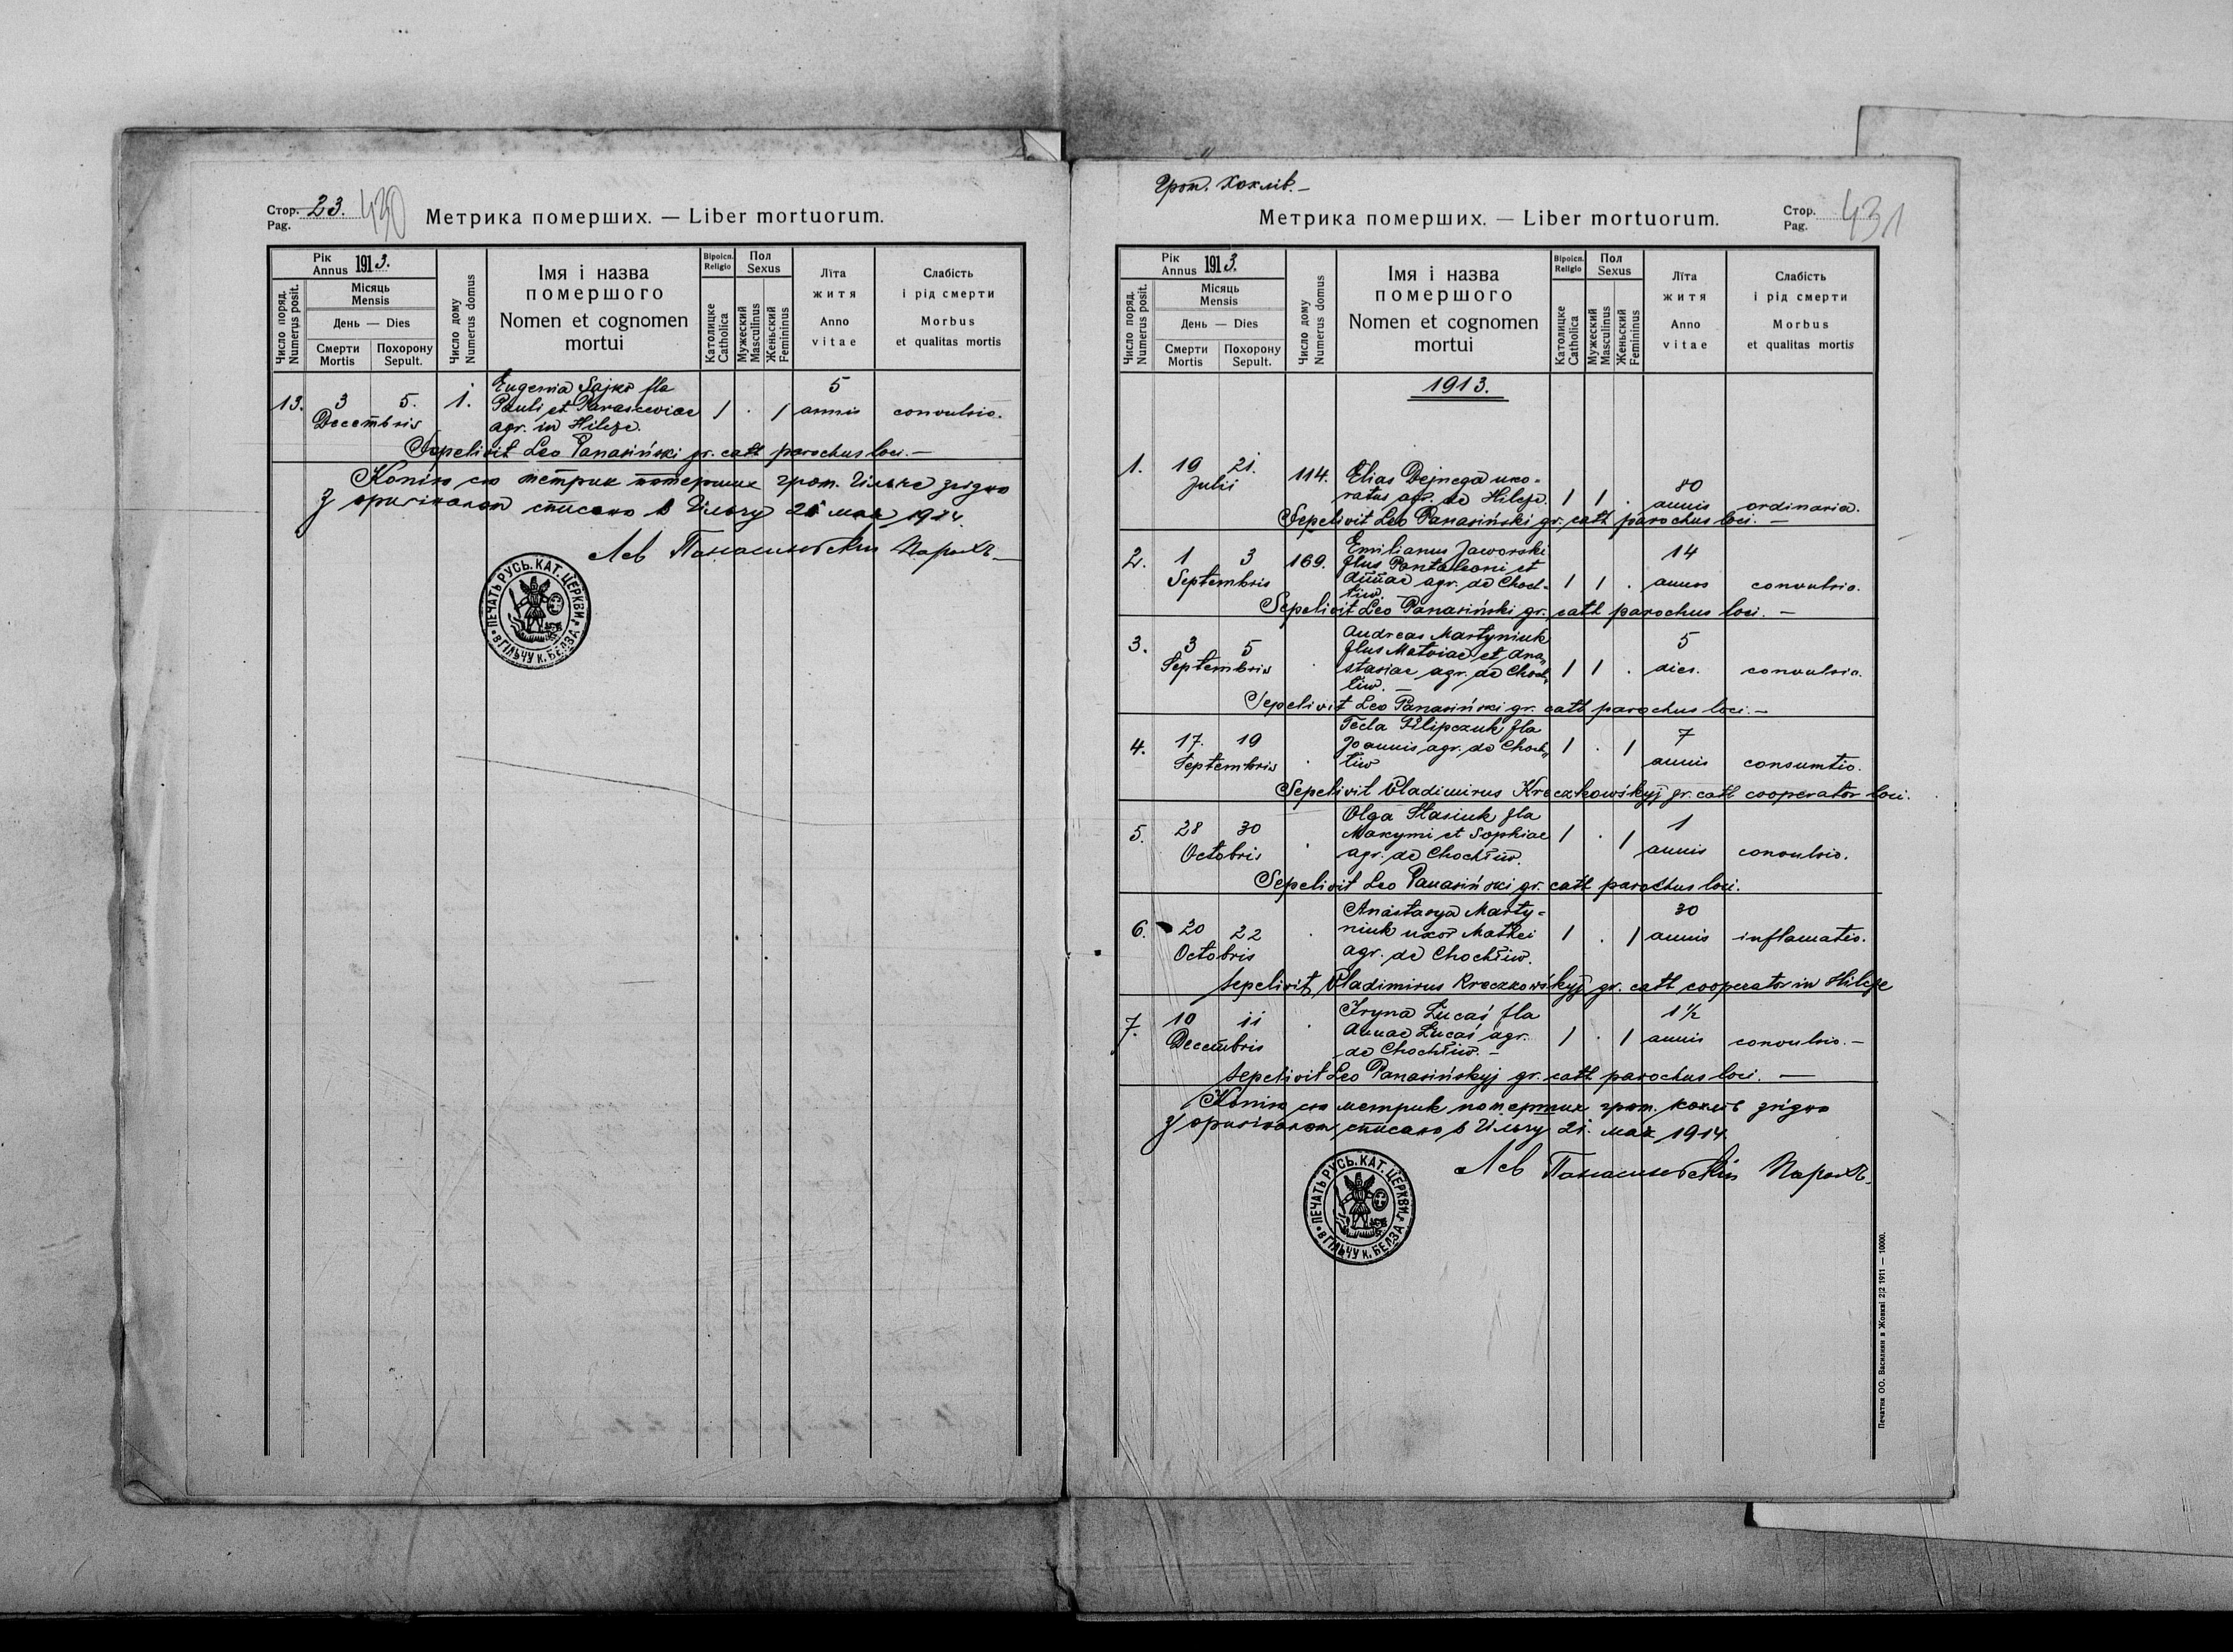 Стор. 23. 430
Pag.
Метрика померших. — Liber mortuorum.
Рік
Annus 1913.
Місяць
Mensis
День — Dies
Смерти
Mortis
Похорону
Sepult.
Число поряд.
Numerus posit.
Число дому
Numerus domus
Імя і назва
помершого
Nomen et cognomen
mortui
Віроісп.
Religio
Католицке
Catholica
Пол
Sexus
Мужеский
Masculinus
Женьский
Femininus
Літа
житя
Anno
vitae
Слабість
і рід смерти
Morbus
et qualitas mortis
13. 3 5. 1. Eugenia Sajko fla 5
Decembris Pauli et Parasceviae 1 . 1 annis convulsio.
agr. in Hilcze.
Sepelivit Leo Panasiński gr. cath parochus loci. —
Копію сю метрик померших гром. Гільче згідно
з оригіналом списано в Гільчу 21 мая 1914.
Лев Панасиньский Парохъ
ПЕЧАТЬ РУСЬ. КАТ. ЦЕРКВИ
в ГІЛЬЧУ к. БЕЛЗА
Гром. Хохлів. —
Метрика померших. — Liber mortuorum.
Стор. 431
Pag.
Рік
Annus 1913.
Місяць
Mensis
День — Dies
Смерти
Mortis
Похорону
Sepult.
Число поряд.
Numerus posit.
Число дому
Numerus domus
Імя і назва
помершого
Nomen et cognomen
mortui
Віроісп.
Religio
Католицке
Catholica
Пол
Sexus
Мужеский
Masculinus
Женьский
Femininus
Літа
житя
Anno
vitae
Слабість
і рід смерти
Morbus
et qualitas mortis
1913.
1. 19 21. 114. Elias Dejnega uxo- 80
Julii ratus agr. de Hilcze. 1 1 . annis ordinaria.
Sepelivit Leo Panasiński gr. cath parochus loci. —
2. 1 3 169. Emilianus Jaworski 14
Septembris flus Pantaleoni et
Annae agr. de Choch- 1 1 . annos convulsio.
łiw. —
Sepelivit Leo Panasiński gr. cath parochus loci. —
3. 3 5 . Andreas Martyniuk 5
Septembris flus Matviae et Ana-
stasiae agr. de Choch- 1 1 . dies. convulsio.
łiw. —
Sepelivit Leo Panasiński gr. cath parochus loci. —
4. 17. 19 . Tecla Filipczuk fla 7
Septembris Joannis agr. de Choch- 1 . 1
łiw annis consumtio.
Sepelivit Vladimirus Kreczkowśkyj gr. cath cooperator loci.
5. 28 30 . Olga Stasiuk fla 1
Octobris Maxymi et Sophiae 1 . 1
agr. de Chochłiw. annis convulsio.
Sepelivit Leo Panasiński gr. cath parochus loci.
6. 20 22 . Anastasya Marty- 30
Octobris niuk uxor Mathei 1 . 1 annis inflamatio.
agr. de Chochłiw.
Sepelivit Vladimirus Kreczkowśkyj gr. cath cooperator in Hilcze
7. 10 11 . Iryna Łucaś fla 1½
Decembris Annae Łucaś agr. 1 . 1 annis convulsio. —
de Chochłiw. —
Sepelivit Leo Panasińskyj gr. cath parochus loci. —
Копію сю метрик померших гром. Хохлів згідно
з оригіналом списано в Гільчу 21. мая 1914.
Лев Панасиньский Парохъ
ПЕЧАТЬ РУСЬ. КАТ. ЦЕРКВИ
в ГІЛЬЧУ к. БЕЛЗА
Печатня ОО. Василиян в Жовкві 2|2 1911 — 10000.